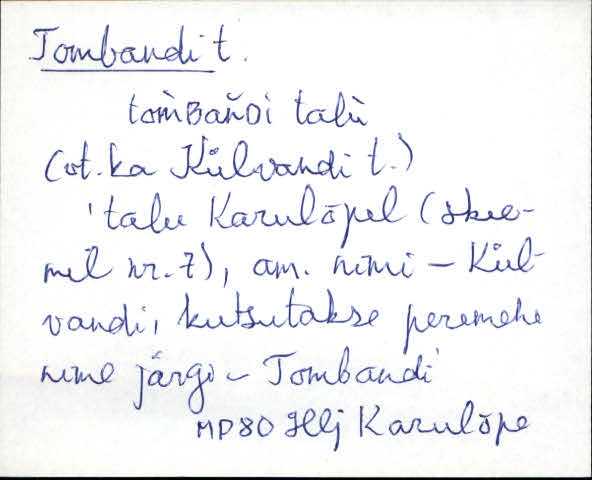 Tombandi t.
tom̀ʙaňᴅi talù
(vt. ka Külvandi t.)
'talu Karulõpel (skee-
mil nr. 7), am. nimi – Kül-
vandi, kutsutakse peremehe
nime järgi – Tombandi'
MP80 Hlj Karulõpe